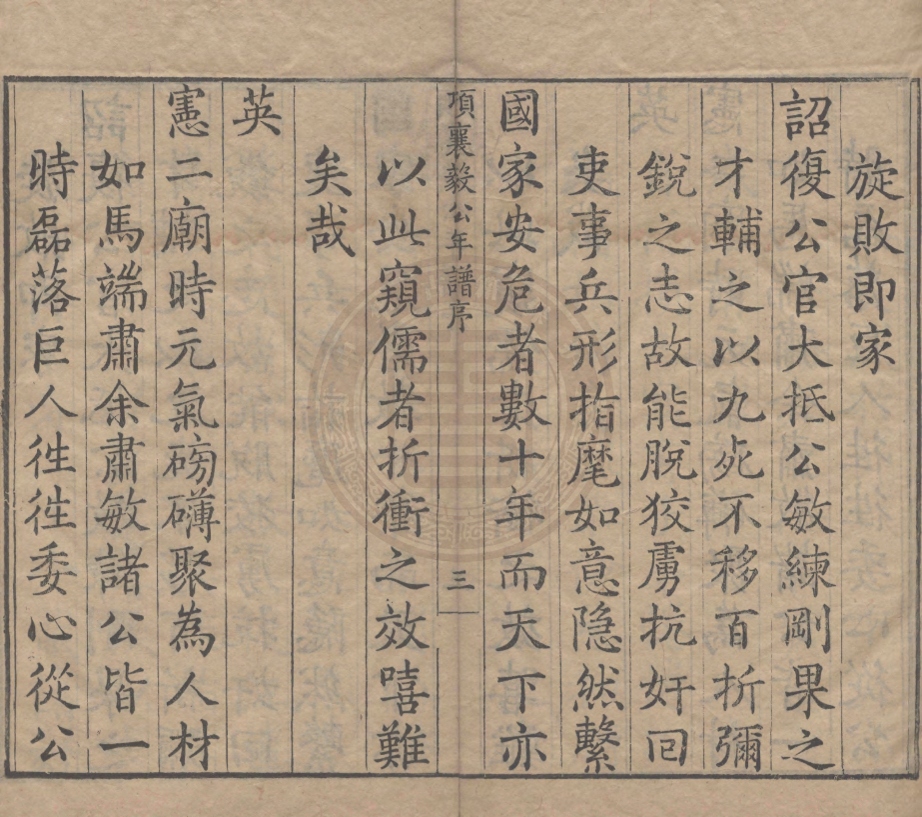 旋敗即家
詔復公官大抵公敏練剛果之
才輔之以九死不移百折彌
銳之志故能脫狡虜抗奸回
吏事兵形指麾如意隐然繫
國家安危者數十年而天下亦
項襄毅公年譜序
三
以此窺儒者折衝之效嘻難
矣哉
英
憲二廟時元氣磅礴聚為人材
如馬端肅余肅敏諸公皆一
時磊落巨人徃徃委心從公